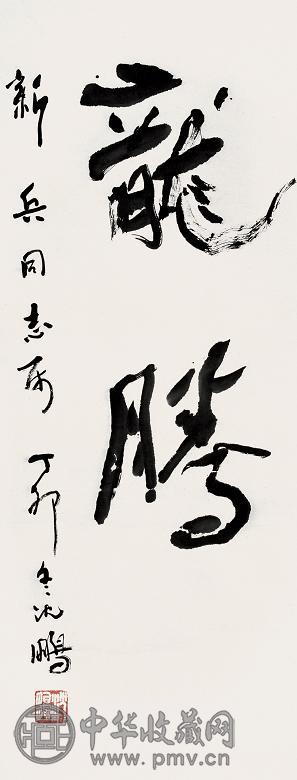 龍騰
新兵同志属 丁卯冬沈鵬
中华收藏网
www.pmv.cn